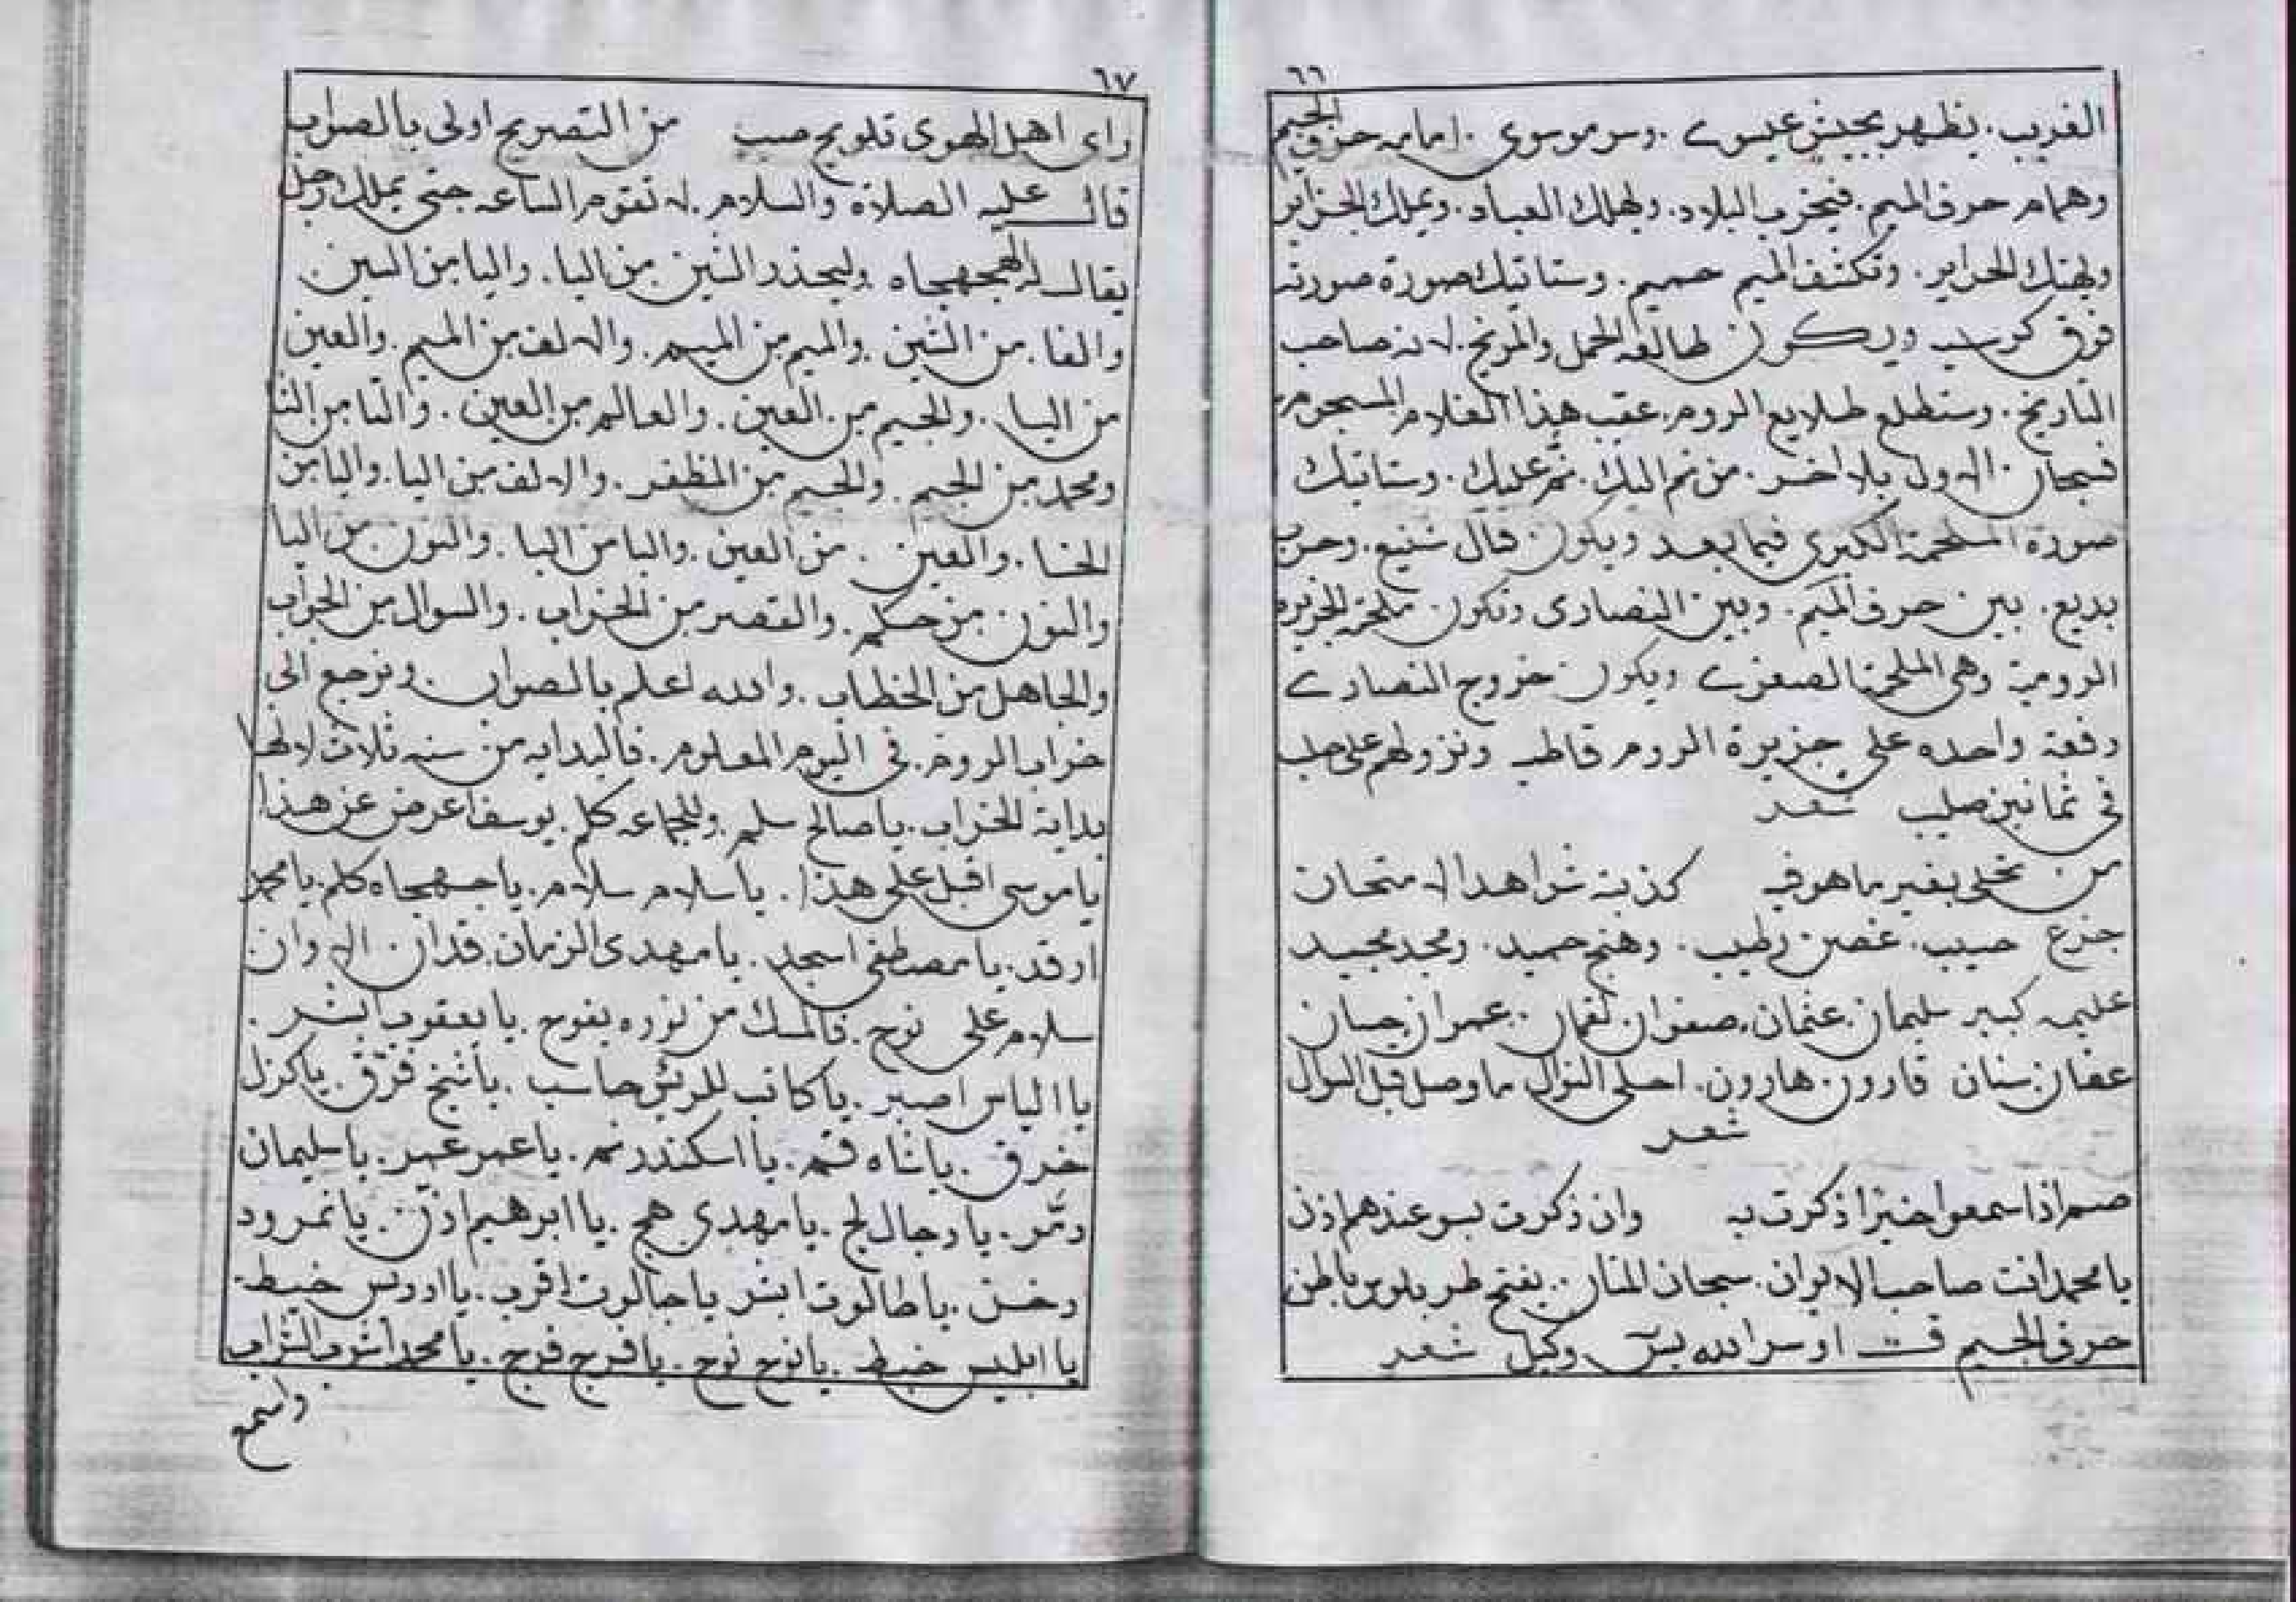 ٦٦
الغريب. يظهر بجيش عيسوى. وسر موسوى. امامه حرف الجيم
وهمام حرف الميم. فيخرب البلاد. ويهلك العباد. ويملك الجزاير
ويهتك الحراير. وتكشف الميم حميم. وستاتيك صورة صورته
فوق كرسيه ويكون طالعه الحمل والمريخ. لانه صاحب
التاريخ. وستطلع طلايع الروم. عقب هذا الغلام المسجوم
فسبحان الاول بلا اخر. من نم اليك. نم عليك. وستاتيك
صورة الملحمة الكبرى فيما بعد ويكون قتال شنيع. وحرب
بديع. بين حرف الميم. وبين النصارى وتكون ملحمة الجزيرة
الرومية وهى الملحمة الصغرى ويكون خروج النصارى
دفعة واحده على جزيرة الروم قاطبه ونزولهم على حلب
فى ثمانين صليب شعر
من تحلى بغير ما هو فيه كذبته شواهد الامتحان
جزع حسيب. غصن رطيب. وهنج حميد. ومجد مجيد
عليمه كبير سليمان. عثمان. صفوان لقمان. عمران حسان
عفان سنان قارون هارون. احلى النوال ما وصل قبل السوال
شعر
صم اذا سمعوا خيرا ذكرت به وان ذكرت بسو عندهم اذن
يا محمد انت صاحب الايوان. سبحان المنان. يفتح طربلوس باطن
حرف الجيم ق او سر الله يس وكيل شعر
٦٧
راى اهل الهوى تلويح صب من التصريح اولى بالصواب
قال عليه الصلاة والسلام. لا تقوم الساعه حتى يملك رجل
يقال له الهجهجاه وليحذر الشين من اليا. واليا من السين.
والفا. من الشين. والميم من الميم. والالف من الميم. والعين
من اليا. والجيم من العين. والعالم من العين. والتا من الثا
ومحمد من الجيم. والجيم من المظفر. والالف من اليا. واليا من
الخا. والعين. من العين. واليا من اليا. والنون من اليا
والنون من حكم. والقصر من الخراب. والسوال من الجواب
والجاهل من الخطاب. والله اعلم بالصواب. ونرجع الى
خراب الروم. فى اليوم المعلوم. فالبدايه من سنه ثلاث لانها
بداية الخراب. يا صالح سلم. وللجماعه كلم. يوسف اعرض عن هذا
يا موسى اقبل على هذا. يا سلام سلام. يا جهجاه كلم. يا محمد
ارقد. يا مصطفى اسجد. يا مهدى الزمان. قد ان الاوان
سلام على نوح. فالمسك من نوره يفوح. يا يعقوب ابشر.
يا الياس اصبر. يا كاتب للموتى حاسب. يا شيخ فرق. يا كزل
خرق. يا شاه قم. يا اسكندر نم. يا عمر عمر. يا سليمان
دمر. يا دجال لج. يا مهدى هج. يا ابرهيم اذن. يا نمرود
دخن. يا طالوت ابشر يا جالوت اقرب. يا ادريس خيط.
يا ابليس خبط. يا نوح نوح. يا فرج فرج. يا محمد اشرب الشراب
واسمع